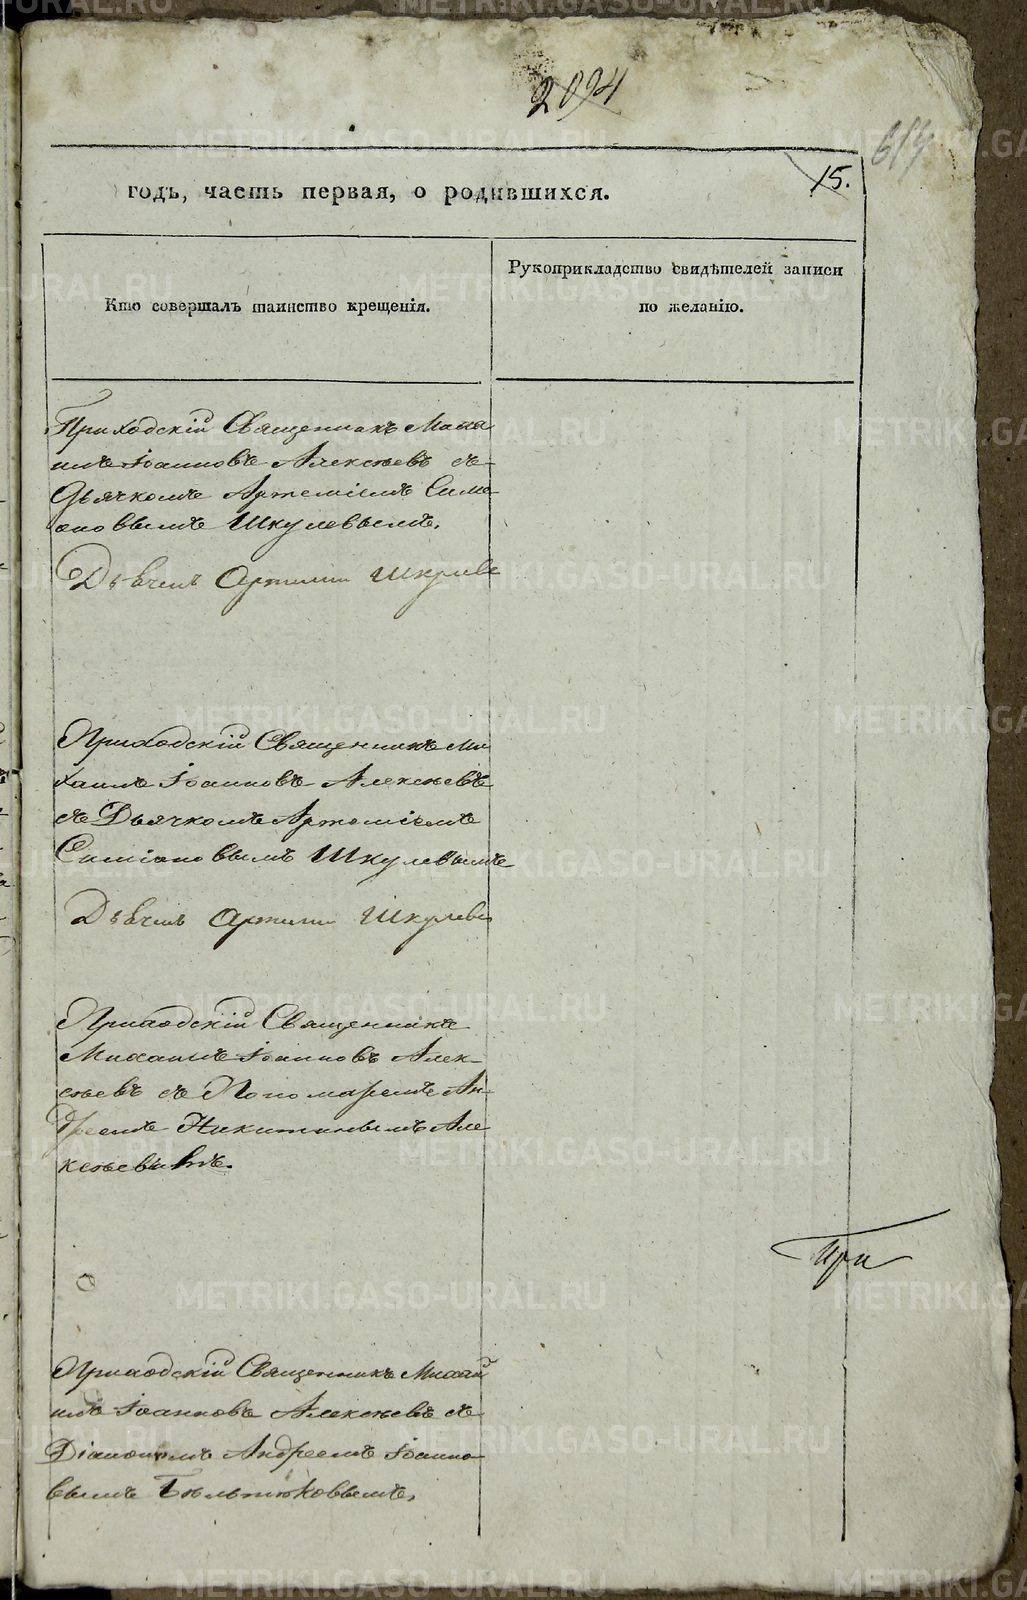 2094
614
15.
годъ, часть первая, о родившихся.
Кто совершалъ таинство крещенія.
Рукоприкладство свидѣтелей записи
по желанію.
Приходскій Священникъ Миха
илъ Іоанновъ Алексѣевъ съ
Дьячкомъ Артеміемъ Симе
оновымъ Шкулевымъ.
Дьячекъ Артеми
Приходскій Священникъ Ми
хаилъ Іоанновъ Алексѣевъ
съ Дьячкомъ Артеміемъ
Симіоновымъ Шкулевымъ
Артеми Шкулевъ
Приходскій Священникъ
Михаилъ Іоанновъ Алек-
сѣевъ съ Пономаремъ Ан-
дреемъ Никитинымъ Але
ксѣевымъ.
При
Приходскій Священникъ Михаи
илъ Іоанновъ Алексѣевъ съ
Діакономъ Андреемъ Іоанно
вымъ Бѣльтюковымъ.
METRIKI.GASO-URAL.RU